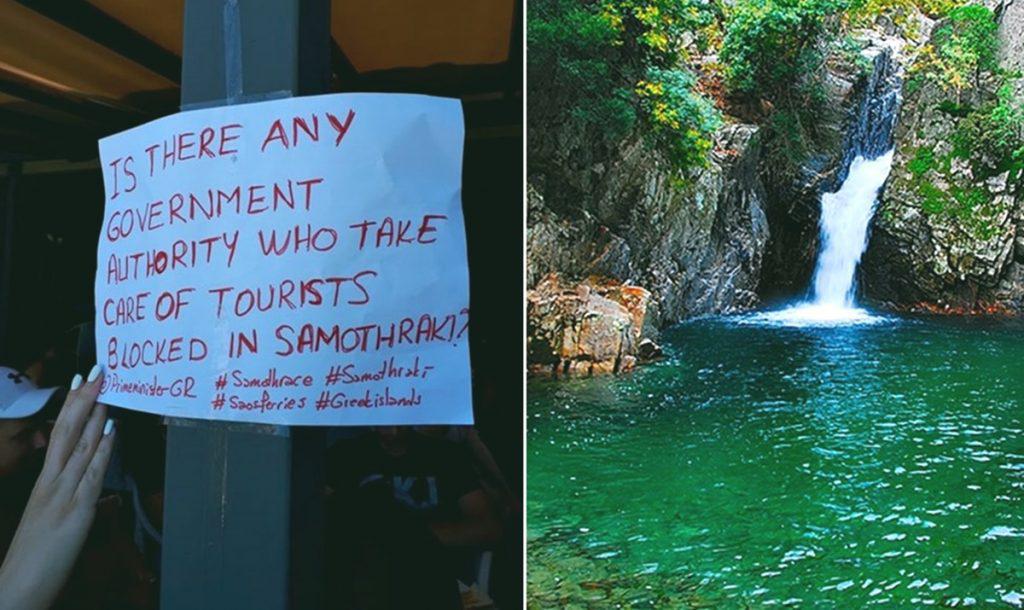 IS THERE ANY
GOVERNMENT
AUTHORITY WHO TAKE
CARE OF TOURISTS
BLOCKED IN SAMOTHRAKI?
@PrimeministerGR #Samothrace #Samothraki
#Saosferries #Greekislands